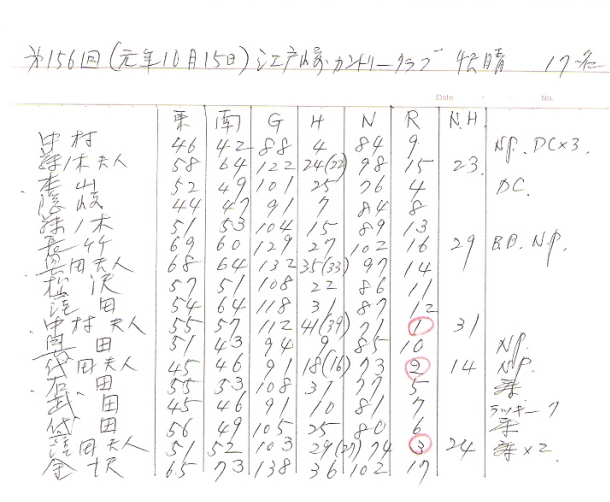 第156回(元年10月15日)江戸崎カントリークラブ 快晴 17名
Date No.
東 南 G H N R N.H
中村 46 42 88 4 84 9 NP. DC×3
鈴木夫人 58 64 122 24(22) 98 15 23
本山 52 49 101 25 76 4 DC.
隠岐 44 47 91 7 84 8
鈴木 51 53 104 15 89 13
69 60 129 27 102 16 29 B.B. N.P.
田夫人 68 64 132 35(33) 97 14
松沢 57 51 108 22 86 11
窪田 54 64 118 31 87 12
中村夫人 55 57 112 41(39) 71 1 31
奥田 51 43 94 9 85 10 NP.
代田夫人 45 46 91 18(16) 73 2 14 NP.
田 55 53 108 31 77 5
武田 45 46 91 10 81 7 ラッキー7
代田 56 49 105 25 80 6
窪田夫人 51 52 103 29(27) 74 3 24 ×2.
金沢 65 73 138 36 102 17